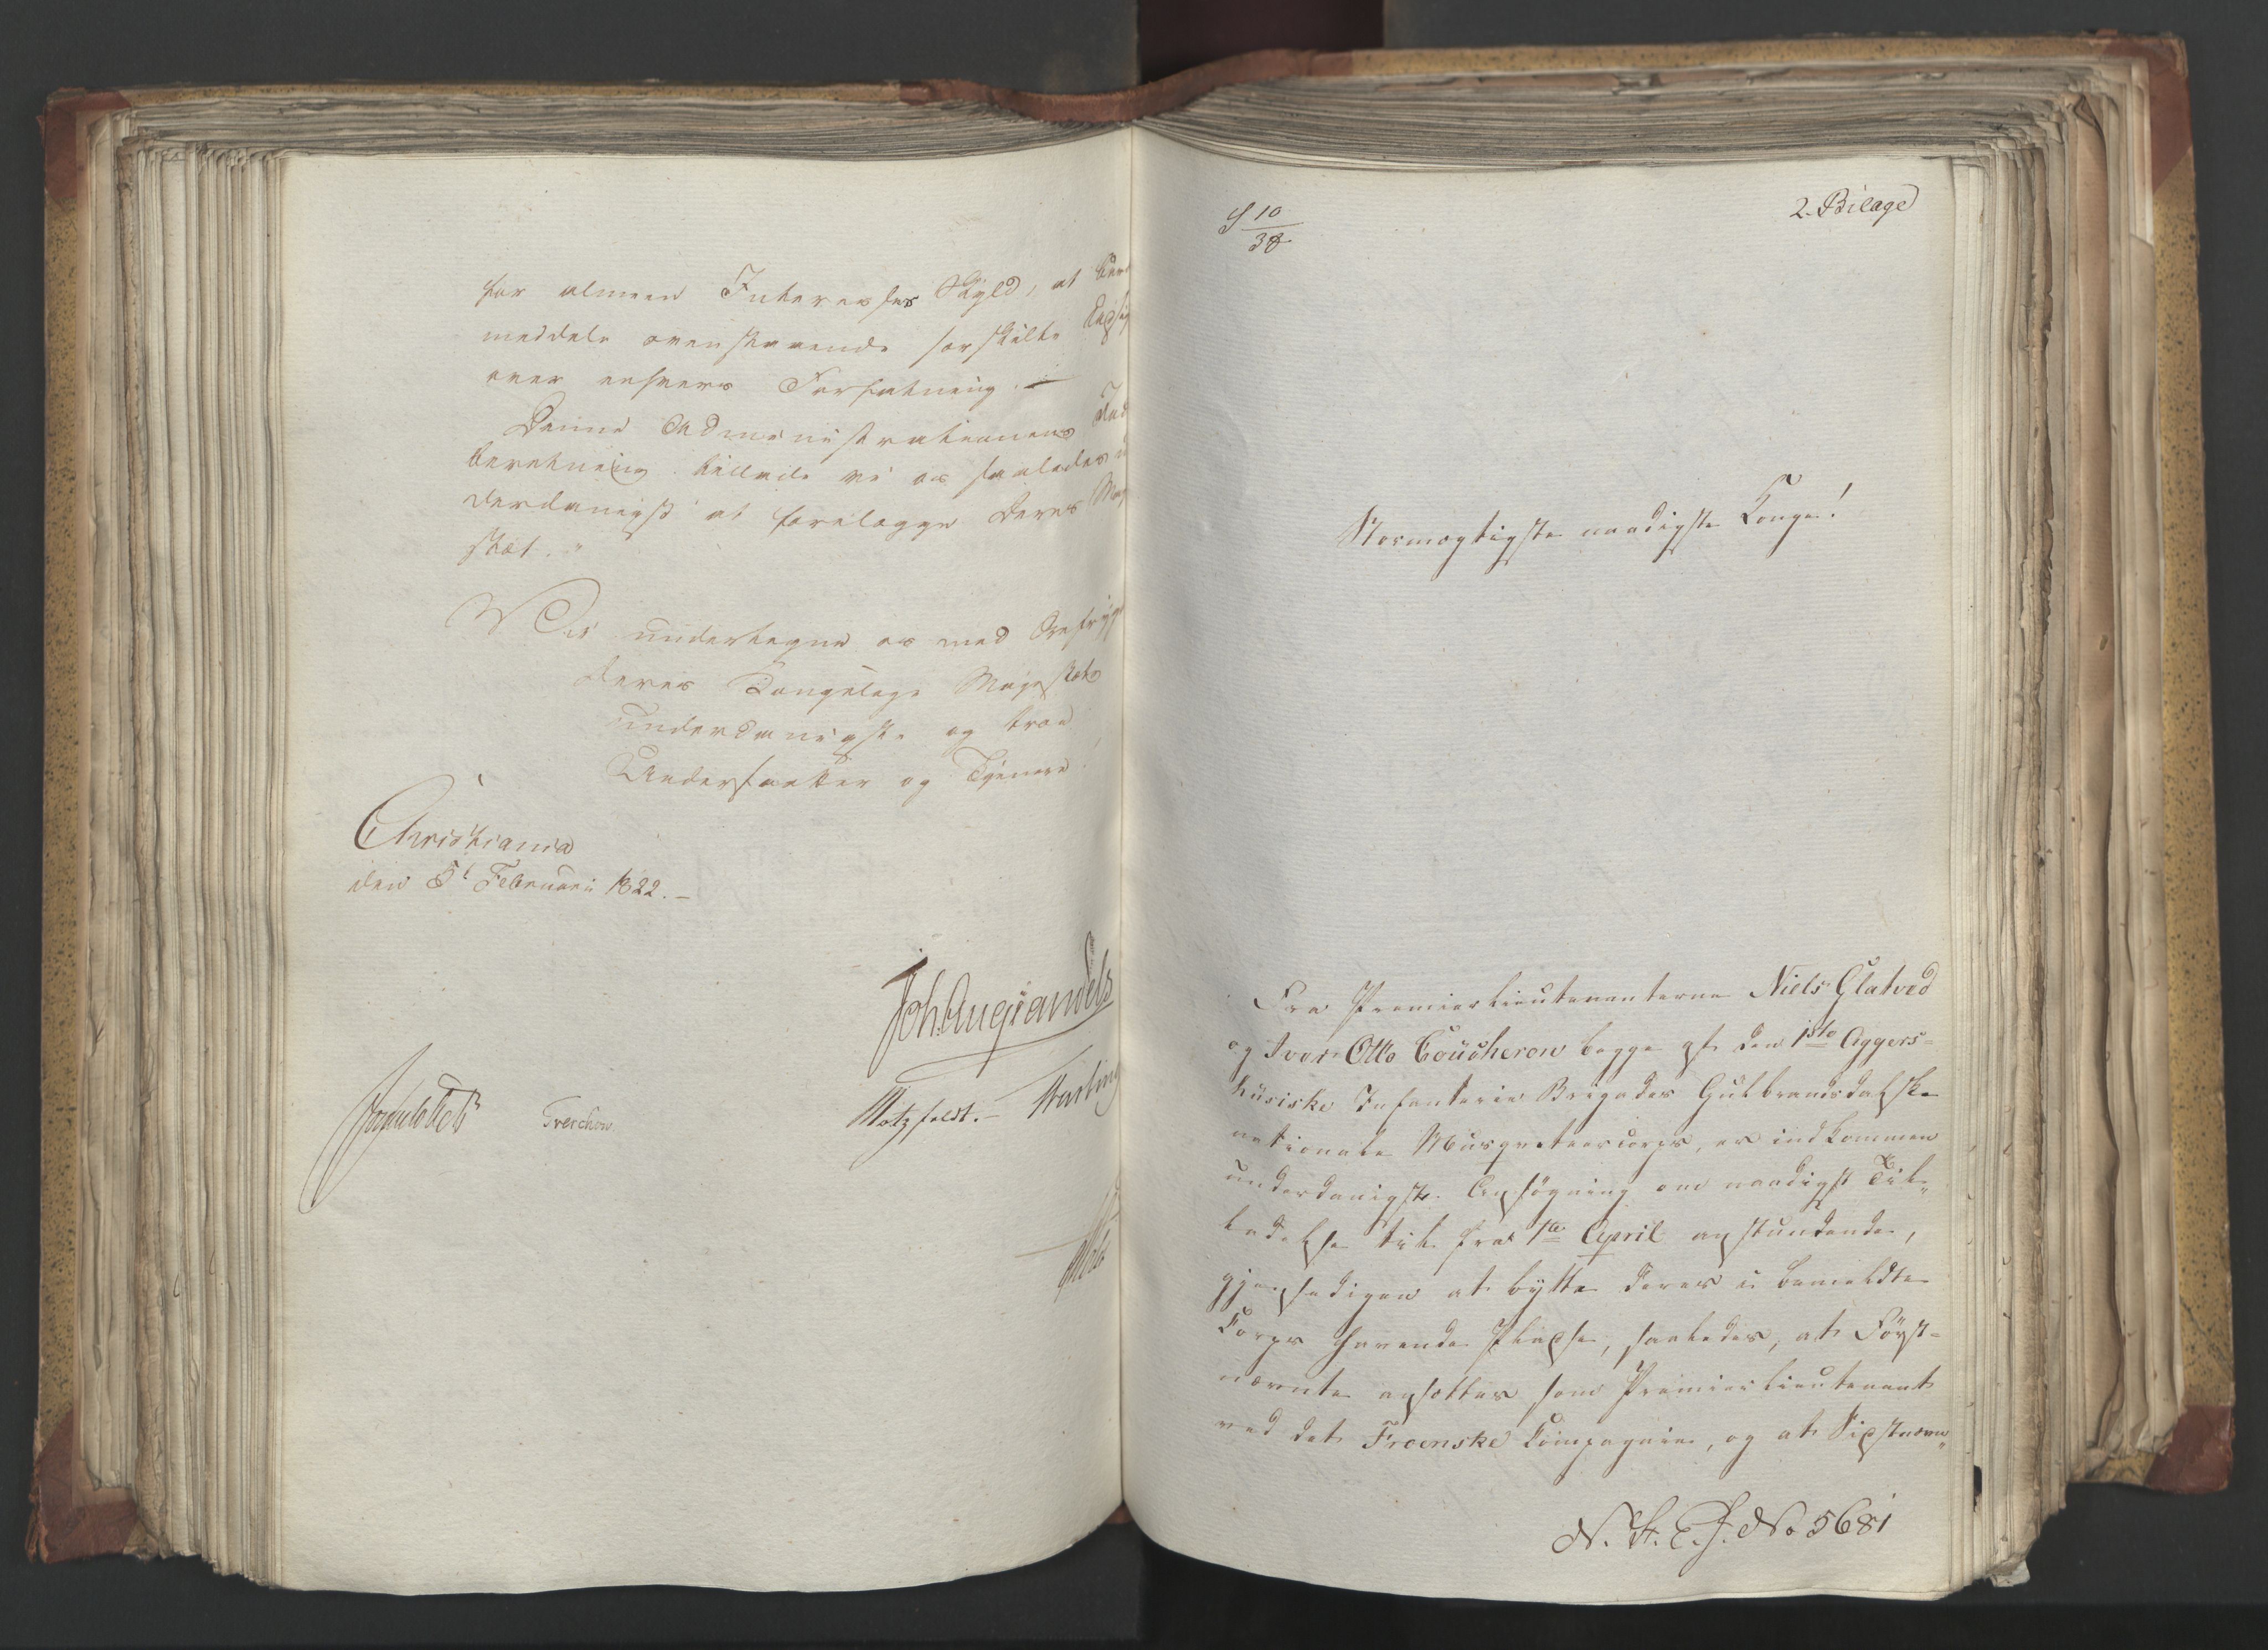 for almeen Interesses Skyld, at
meddele ovenstaaende særskilte
over enhvers Forfatning. —
Denne Administrationens Ind
beretning tillade vi os saaledes u
derdanigst at forelægge Deres Maj
stæt.
Vi undertegne os med Ærefrygt
Deres Kongelige Majestæts
underdanigste og troe
Undersaatter og Tjenere
Christiania
den 5t Februari 1822. —
Treschow
Motzfeldt. —
S 10/38
2. Bilage
Stormægtigste naadigste Konge!
Fra Premierlieutenanterne Niels Glatved
og Iver Otto Coucheron begge af den 1ste Aggers=
huusiske Infanterie Brigades Gulbrandsdalske
nationale Musqueteercorps, er indkommen
underdanigste Ansøgning om naadigst Til=
ladelse til fra 1te April anstundende,
gjensidigen at bytte deres i bemeldte
Corps havende Pladse, saaledes, at Først=
nævnte ansættes som Premierlieutenant
ved det Froenske Compagnie, og at Sidstnævn=
N. St. E. J. No 5681